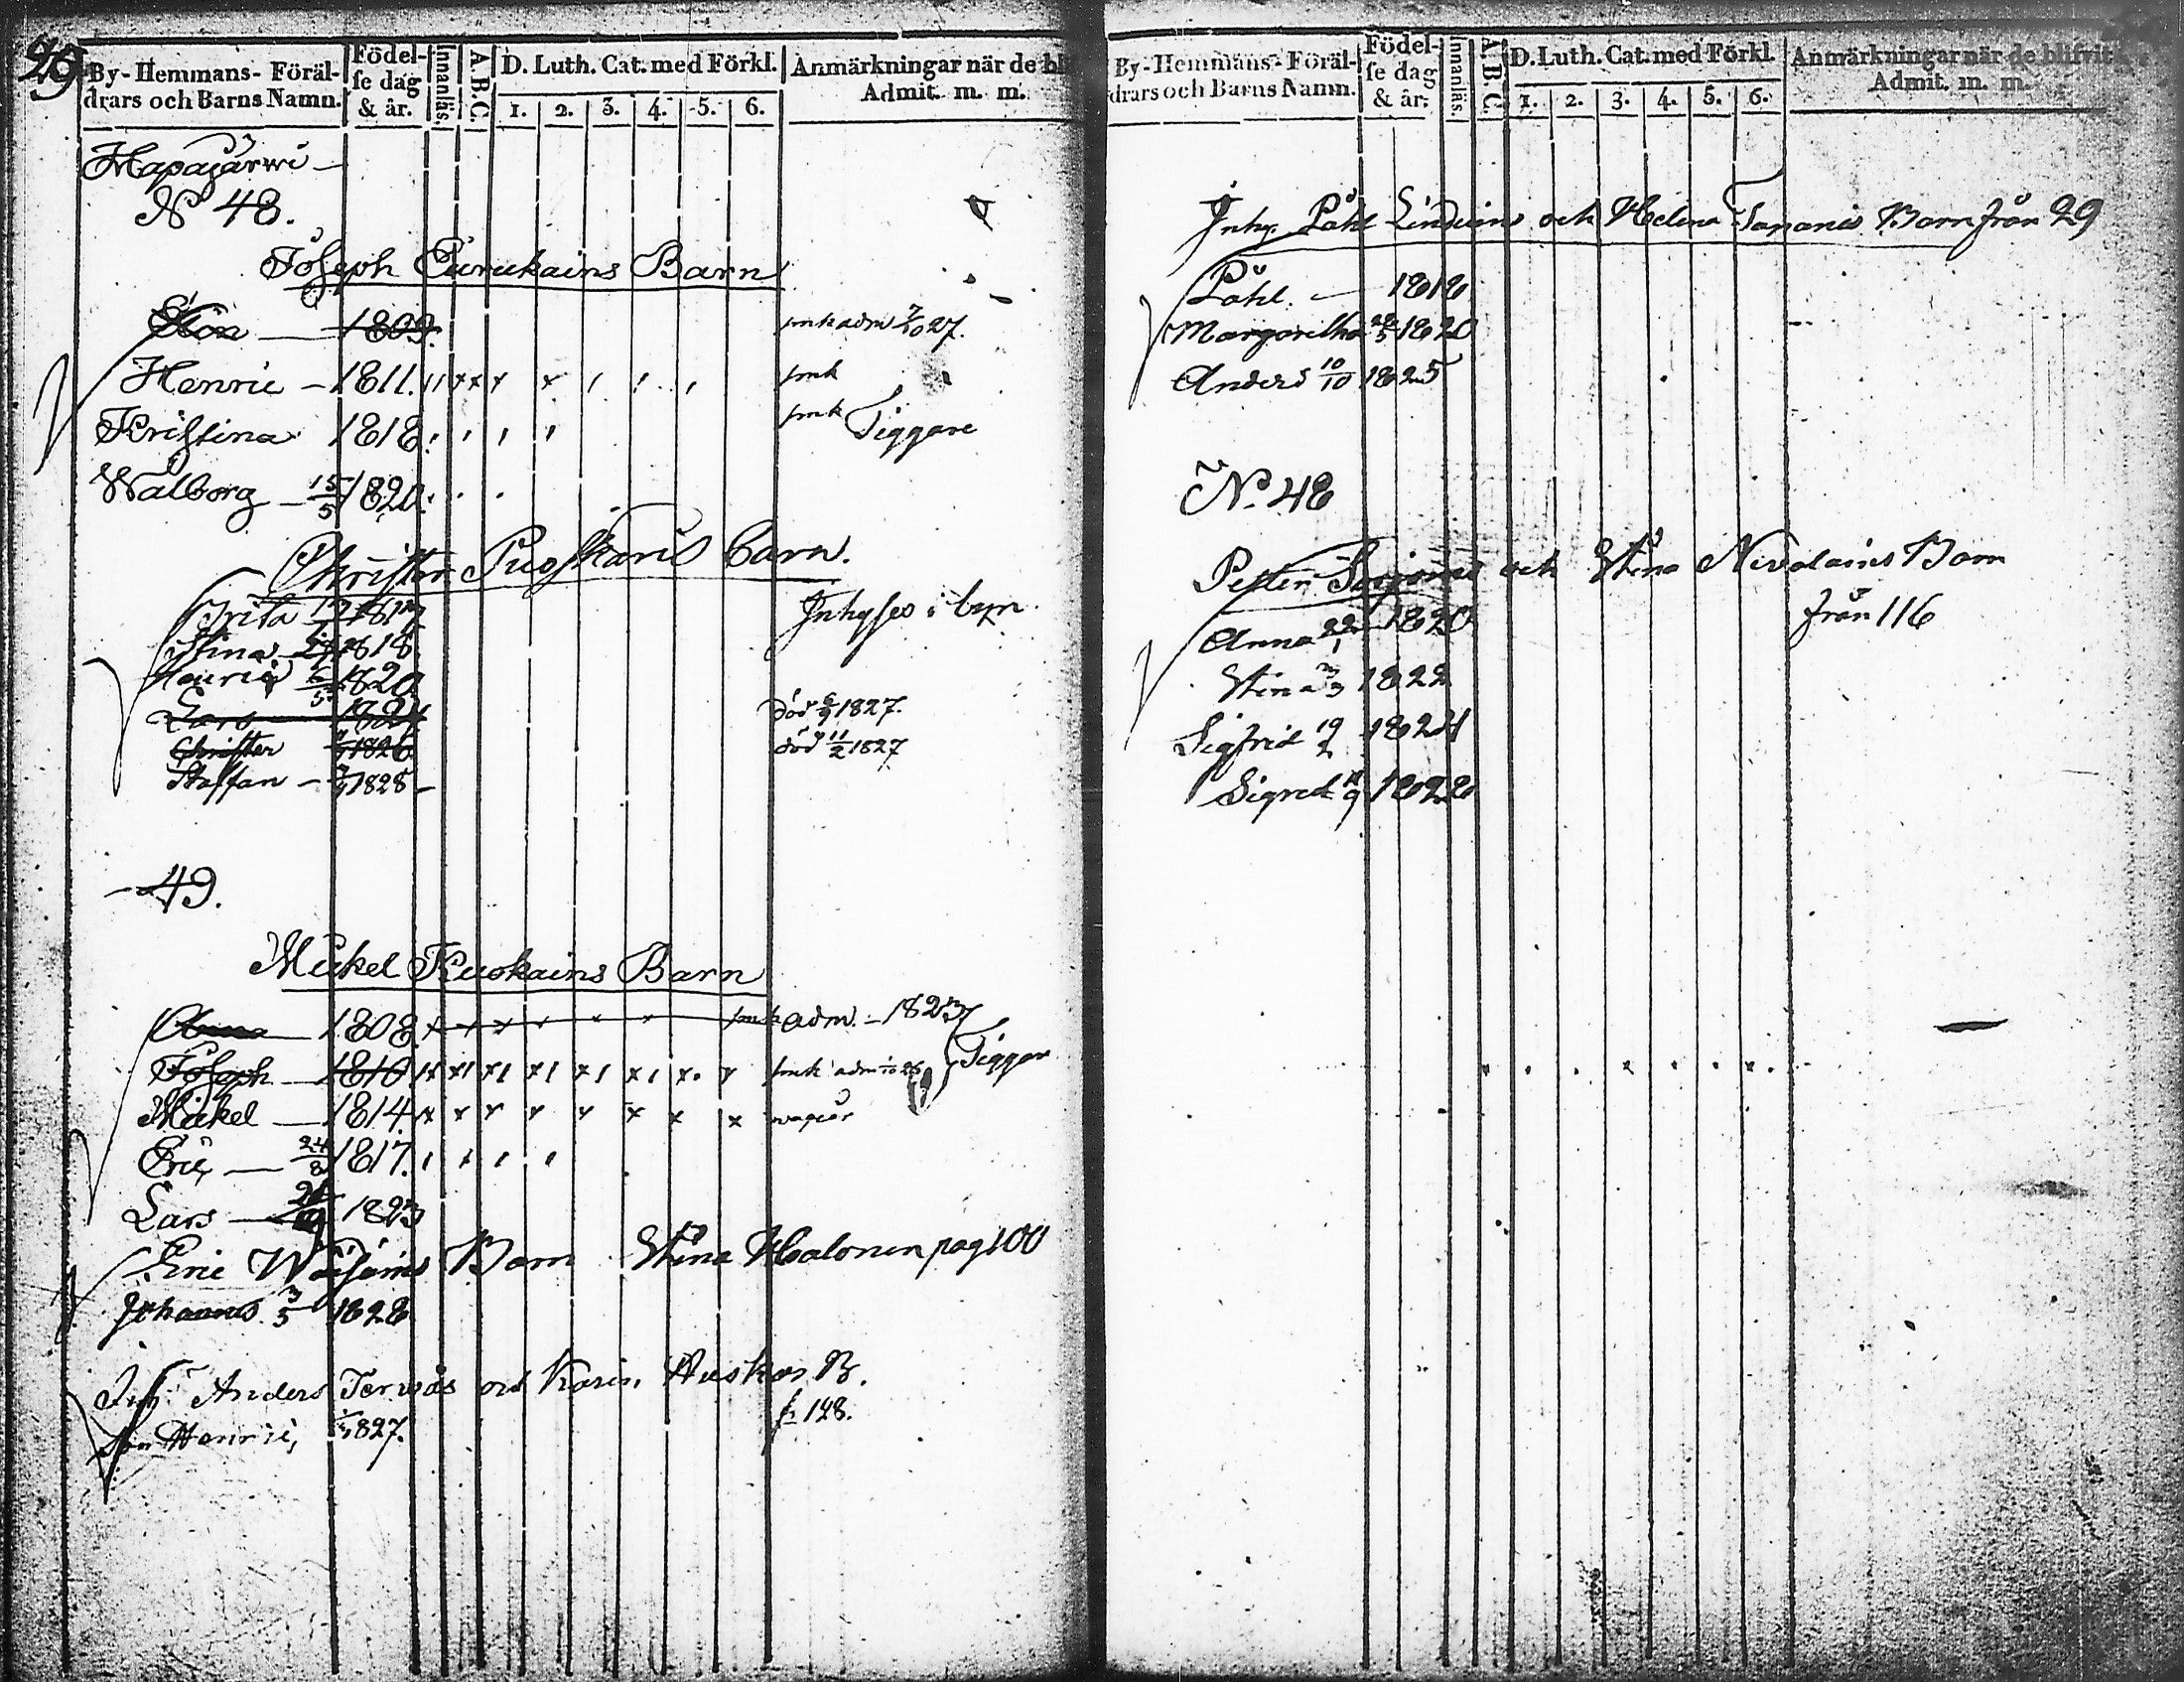 29
By-Hemmans-Föräldrars och Barns Namn. Födelse dag & år. Innanläs. A.B.C. D. Luth. Cat. med Förkl. 1. 2. 3. 4. 5. 6. Anmärkningar när de bl Admit. m. m.
Hapajärwi
N 48.
Joseph Purukains Barn
1809. adm 7/10 27.
Henric 1811. smk
Kristina 1818. smk Tiggare
Walborg 15/5 1820.
Christer Puoskaris barn.
Brita 1817 Inhyses i byn.
Stina 1818
Henric 1820
Lars 1824 död 1827.
Christer 1826 död 11/2 1827
Staffan 1828
49.
Mickel Kuokains Barn
Anna 1808. smk adm. 1823
Joseph 1810 smk adm Tiggar
Mickel 1814.
Eric 24/8 1817.
Lars 1823
Eric Barn Stina Halonen pag 100
Johannes 3/5 1828
Inh. Anders Terwas och Karin B.
son Henric, 1827. fr 128.
By-Hemmans-Föräldrars och Barns Namn. Födelse dag & år. Innanläs. A.B.C. D. Luth. Cat. med Förkl. 1. 2. 3. 4. 5. 6. Anmärkningar när de blifvit Admit. m. m.
Inhy. Påhl och Helena Barn från 29
Påhl. 1818
Margaretha 1820
Anders 10/10 1825
No. 48
Petter och Stina Nivalains Barn
från 116
Anna 22/1 1820
Stina 1822
Sigfrid 19/2 1824
Sigrid 1828